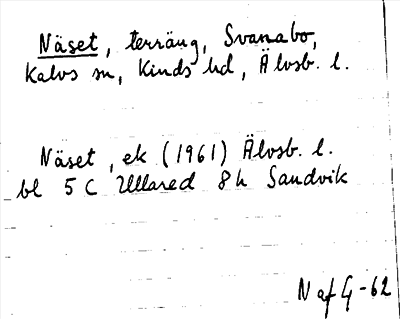 Näset, terräng, Svanabo,
Kalvs sn, Kinds hd, Älvsb. l.
Näset, ek (1961) Älvsb. l.
bl 5 C Ullared 8 h Sandvik
N af G -62